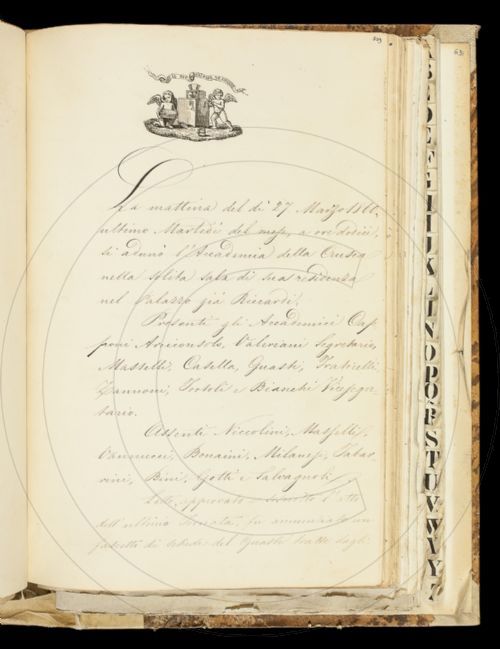 La mattina del dì 27 Marzo 1860,
ultimo Martedì del mese, a ore dodici,
si adunò l'Accademia della Crusca
nella solita sala di sua residenza
nel Palazzo già Riccardi.
Presenti gli Accademici Cap
poni Arciconsolo, Valeriani Segretario,
Casella, Guasti, Fraticelli,
Zannoni, Tortoli e Bianchi Vicesegre-
tario.
Assenti Niccolini,
Vannucci, Bonaini, Milanesi,
Bini, Gotti e Salvagnoli.
Letto, approvato e l'atto
dell'ultima fu annunziato un
di schede del Guasti tratte dagli
A
B
C
D
E
F
G
H
I
J
K
L
N
O
P
Q
R
S
T
U
V
W
Y
Z